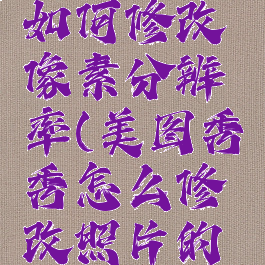 如何修改
像素分辨
率(美图秀
秀怎么修
改照片的